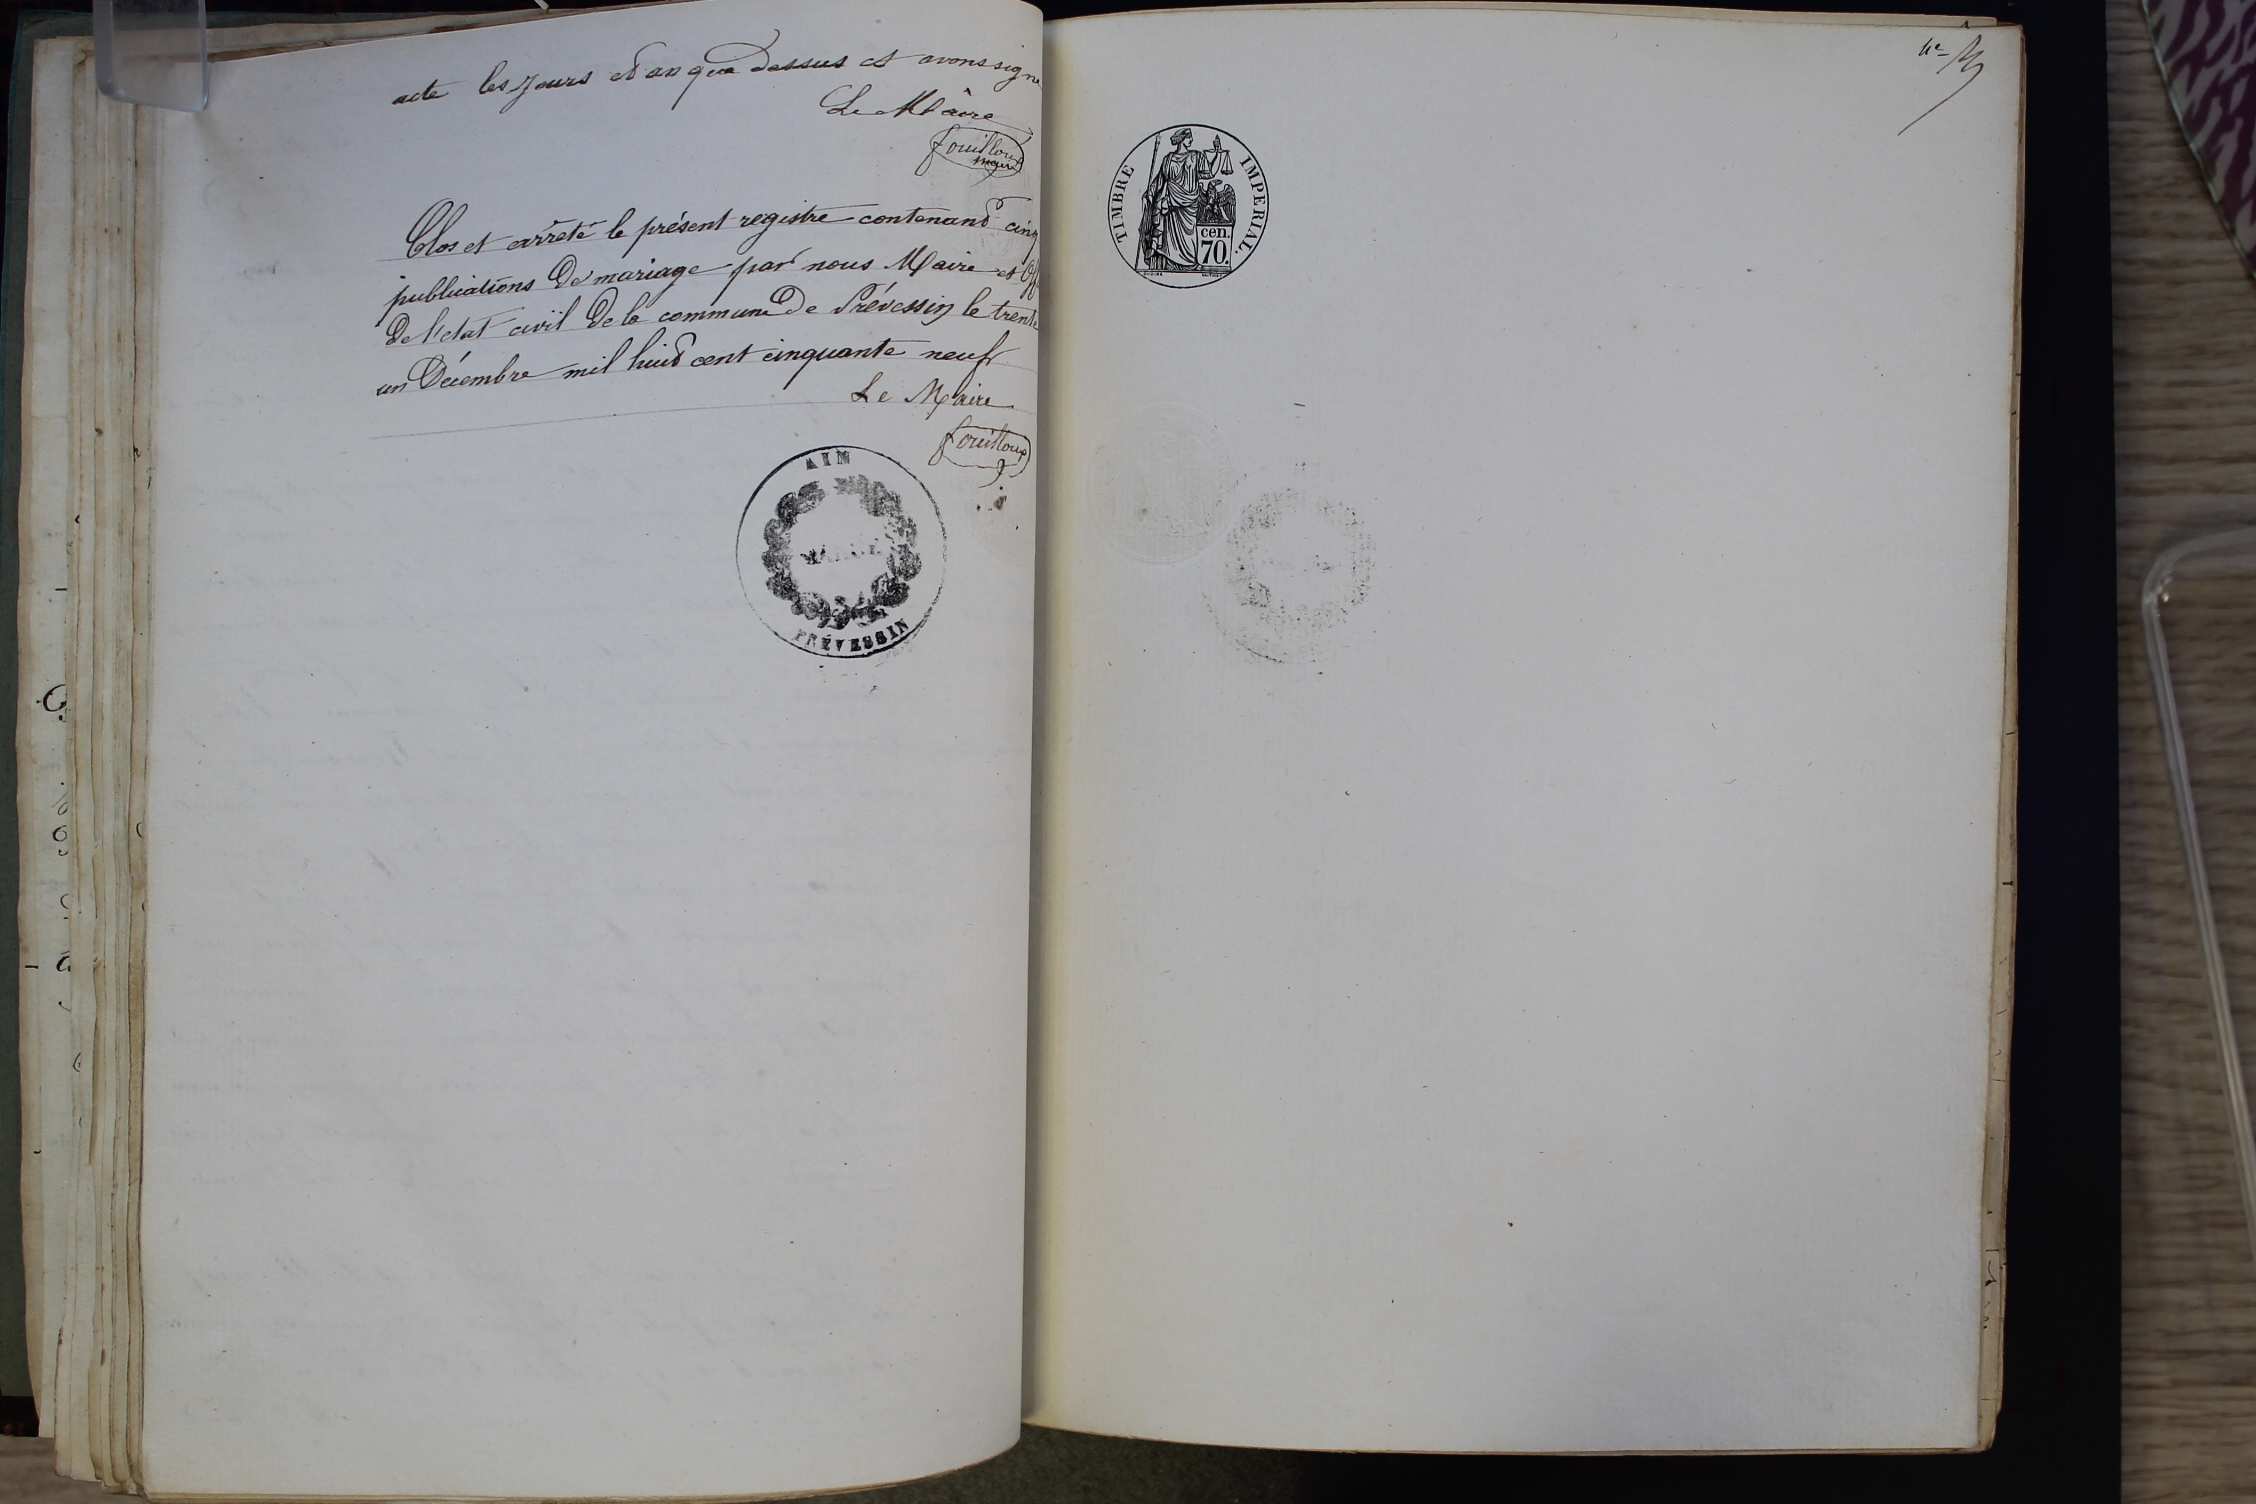 acte les jours et an que dessus et avons signé
Le Maire
fouilloux
maire
Clos et arrêté le présent registre contenant cinq
publications de mariage par nous Maire et Off
de l'etat civil de la commune de Prévessin le trente
un Décembre mil huit cent cinquante neuf
Le Maire
fouilloux
AIN
MAIRIE
PRÉVESSIN
4e
TIMBRE IMPERIAL.
cen.
70.